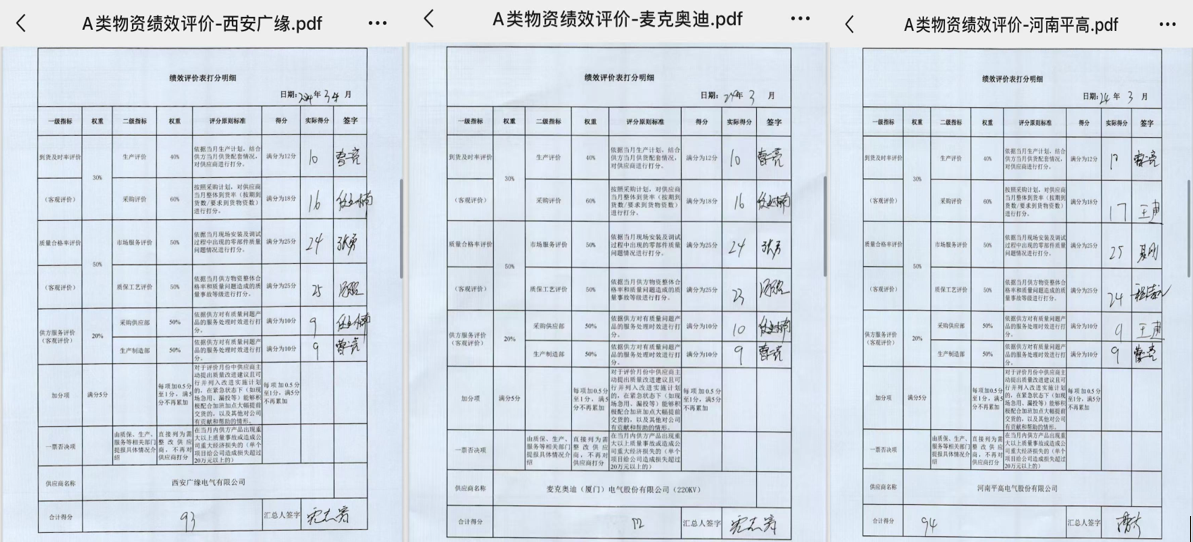 A类物资绩效评价-西安广缘.pdf
绩效评价表打分明细
日期: 年 3 月
一级指标 权重 二级指标 权重 评分原则标准 得分 实际得分 签字
到货及时率评价
(客观评价)
30%
生产评价 40% 依据当月生产计划,结合供方当月供货配套情况,对供应商进行打分。 满分为12分 10
采购评价 60% 按照采购计划,对供应商当月整体到货率(按期到货数/要求到货物资数)进行打分。 满分为18分 16
质量合格率评价
(客观评价)
50%
市场服务评价 50% 依据当月现场安装及调试过程中出现的零部件质量问题情况进行打分。 满分为25分 24
质保工艺评价 50% 依据当月供方物资整体合格率和质量问题造成的质量事故等级进行打分。 满分为25分 25
供方服务评价
(客观评价)
20%
采购供应部 50% 依据供方对有质量问题产品的服务处理时效进行打分。 满分为10分 9
生产制造部 50% 依据供方对有质量问题产品的服务处理时效进行打分。 满分为10分 9
加分项 满分5分 每项加0.5分至1分,满5分不再累加 对于评价月份中供应商主动提出质量改进建议且可行并列入改进实施计划的,在紧急状态下(如现场急用、漏投等)能够积极配合加班加点大幅提前交货的,以及其他对公司有贡献和帮助的情形。 每项加0.5分至1分,满5分不再累加
一票否决项 由质保、生产、服务等相关部门提报具体情况介绍 直接列为整改供应商,不再对供应商打分 在当月内供方产品出现重大以上质量事故或造成公司重大经济损失的(单个项目给公司造成损失超过20万元以上的)
供应商名称 西安广缘电气有限公司
合计得分 93 汇总人签字
A类物资绩效评价-麦克奥迪.pdf
绩效评价表打分明细
日期: 年 3 月
一级指标 权重 二级指标 权重 评分原则标准 得分 实际得分 签字
到货及时率评价
(客观评价)
30%
生产评价 40% 依据当月生产计划,结合供方当月供货配套情况,对供应商进行打分。 满分为12分 10
采购评价 60% 按照采购计划,对供应商当月整体到货率(按期到货数/要求到货物资数)进行打分。 满分为18分 16
质量合格率评价
(客观评价)
50%
市场服务评价 50% 依据当月现场安装及调试过程中出现的零部件质量问题情况进行打分。 满分为25分 24
质保工艺评价 50% 依据当月供方物资整体合格率和质量问题造成的质量事故等级进行打分。 满分为25分 23
供方服务评价
(客观评价)
20%
采购供应部 50% 依据供方对有质量问题产品的服务处理时效进行打分。 满分为10分 10
生产制造部 50% 依据供方对有质量问题产品的服务处理时效进行打分。 满分为10分 9
加分项 满分5分 每项加0.5分至1分,满5分不再累加 对于评价月份中供应商主动提出质量改进建议且可行并列入改进实施计划的,在紧急状态下(如现场急用、漏投等)能够积极配合加班加点大幅提前交货的,以及其他对公司有贡献和帮助的情形。 每项加0.5分至1分,满5分不再累加
一票否决项 由质保、生产、服务等相关部门提报具体情况介绍 直接列为整改供应商,不再对供应商打分 在当月内供方产品出现重大以上质量事故或造成公司重大经济损失的(单个项目给公司造成损失超过20万元以上的)
供应商名称 麦克奥迪(厦门)电气股份有限公司(220KV)
合计得分 汇总人签字
A类物资绩效评价-河南平高.pdf
绩效评价表打分明细
日期: 24 年 3 月
一级指标 权重 二级指标 权重 评分原则标准 得分 实际得分 签字
到货及时率评价
(客观评价)
30%
生产评价 40% 依据当月生产计划,结合供方当月供货配套情况,对供应商进行打分。 满分为12分
采购评价 60% 按照采购计划,对供应商当月整体到货率(按期到货数/要求到货物资数)进行打分。 满分为18分 17
质量合格率评价
(客观评价)
50%
市场服务评价 50% 依据当月现场安装及调试过程中出现的零部件质量问题情况进行打分。 满分为25分 25
质保工艺评价 50% 依据当月供方物资整体合格率和质量问题造成的质量事故等级进行打分。 满分为25分 24
供方服务评价
(客观评价)
20%
采购供应部 50% 依据供方对有质量问题产品的服务处理时效进行打分。 满分为10分 9
生产制造部 50% 依据供方对有质量问题产品的服务处理时效进行打分。 满分为10分 9
加分项 满分5分 每项加0.5分至1分,满5分不再累加 对于评价月份中供应商主动提出质量改进建议且可行并列入改进实施计划的,在紧急状态下(如现场急用、漏投等)能够积极配合加班加点大幅提前交货的,以及其他对公司有贡献和帮助的情形。 每项加0.5分至1分,满5分不再累加
一票否决项 由质保、生产、服务等相关部门提报具体情况介绍 直接列为整改供应商,不再对供应商打分 在当月内供方产品出现重大以上质量事故或造成公司重大经济损失的(单个项目给公司造成损失超过20万元以上的)
供应商名称 河南平高电气股份有限公司
合计得分 94 汇总人签字